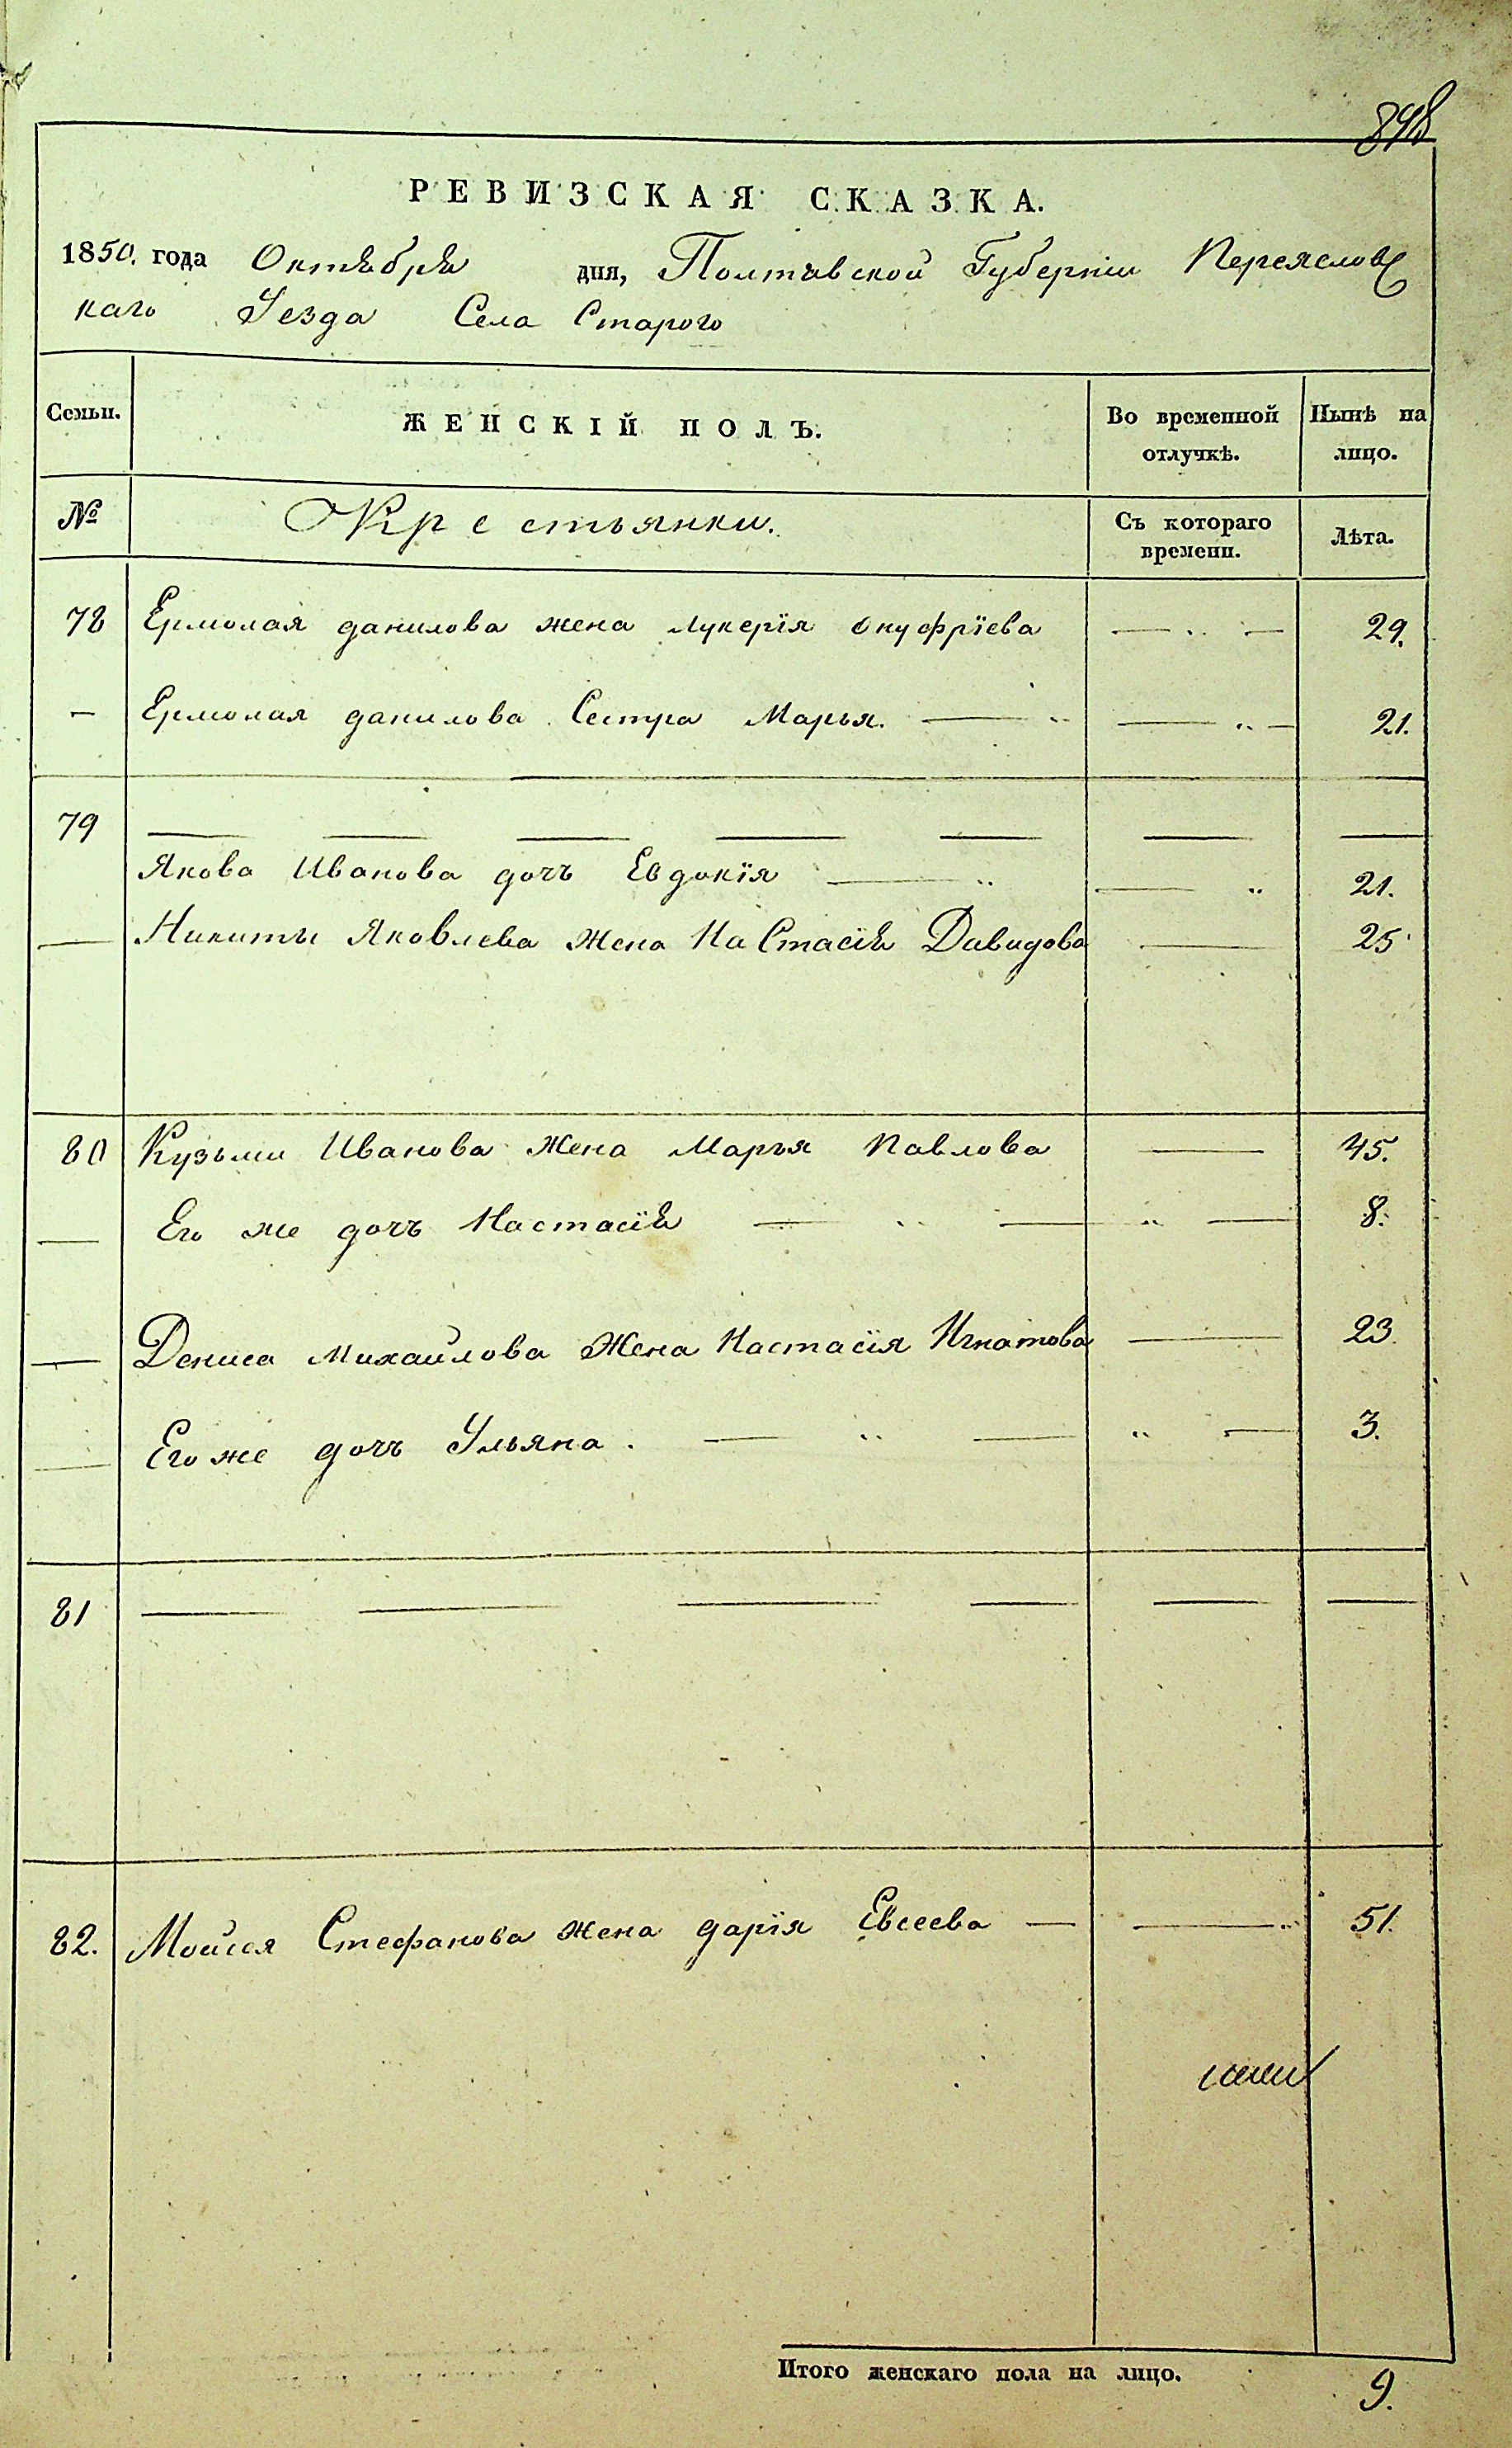 898
РЕВИЗСКАЯ СКАЗКА.
1850. года Октября дня, Полтавской Губерніи Переяслов
каго Уезда Села Старого
Семьи. ЖЕНСКІЙ ПОЛЪ. Во временной отлучкѣ. Нынѣ на лицо.
№ Крестьянки. Съ котораго времени. Лѣта.
78 Ермолая данилова жена Лукерія Онуфріева — „ — 29.
— Ермолая данилова Сестра Марья. — „ — „ — 21.
79 — — — — — — —
Якова Иванова дочъ Евдокія — „ — „ 21.
— Никиты Яковлева жена НаСтасія Давидова — 25
80 Кузьми Иванова жена Марья Павлова — 45.
— Его же дочъ Настасія — „ — „ — 8.
— Дениса Михайлова Жена Настасія Игнатова — 23
— Его же дочъ Ульяна. — „ — „ — 3.
81 — — — — — —
82. Мойсея Стефанова жена дарія Евсеева — — „ 51.
Итого женскаго пола на лицо. 9.